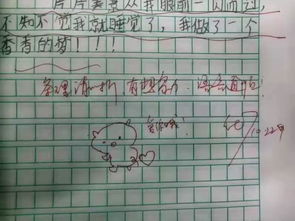 片片美景从我眼前一闪而过，
不知不觉我就睡觉了，我做了一个
香香的梦！！！
条理清晰，有想象力，语言有
10.22